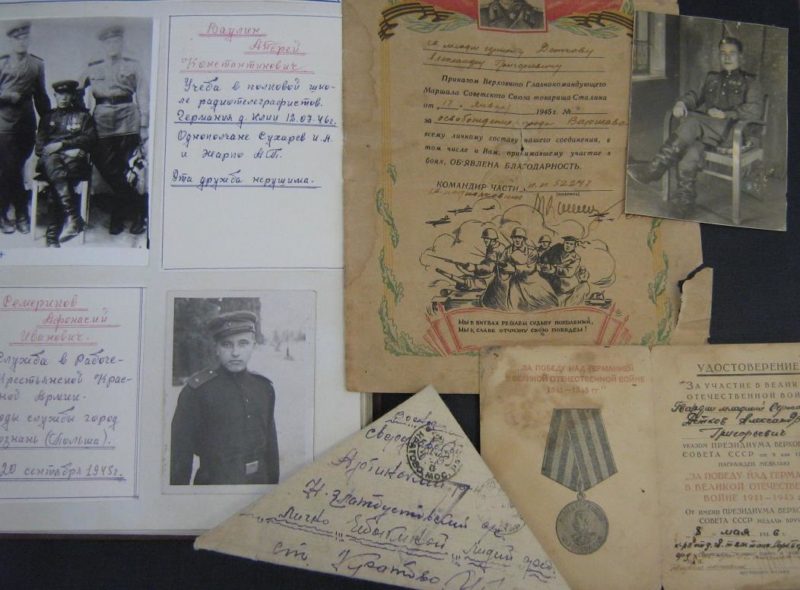 Ваулин
Андрей
Константинович.
Учеба в полковой шко-
ле радиотелеграфистов.
Германия д. Клии 12.07.46г.
Однополчане Сухарев и.А
и Жарко Н.П.
Эта дружба нерушима.
Семеринов
Афонасий
Иванович.
Служба в Рабоче-
Крестьянской Крас
ной Армии.
оды службы город
ознань (Польша).
20 сентября 1945г.
Александру Григорьевичу
Приказом Верховного Главнокомандующего
Маршала Советского Союза товарища Сталина
от 17 января 1945 г. №
за освобождение города Варшава
всему личному составу нашего соединения, в
том числе и Вам, принимавшему участие в
боях, ОБ'ЯВЛЕНА БЛАГОДАРНОСТЬ.
КОМАНДИР ЧАСТИ п.п 52248
МЫ В БИТВАХ РЕШАЕМ СУДЬБУ ПОКОЛЕНИЙ,
МЫ К СЛАВЕ ОТЧИЗНУ СВОЮ ПОВЕДЕМ!
„ЗА ПОБЕДУ НАД ГЕРМАНИЕЙ
В ВЕЛИКОЙ ОТЕЧЕСТВЕННОЙ ВОЙНЕ
1941—1945 гг."
УДОСТОВЕРЕНИЕ
ЗА УЧАСТИЕ В ВЕЛИК
ОТЕЧЕСТВЕННОЙ ВОЙ
Гвардии младший Серж
Александр
Григорьевич
УКАЗОМ ПРЕЗИДИУМА ВЕРХО
СОВЕТА СССР от 9 мая
НАГРАЖДЕН МЕДАЛЬЮ
"ЗА ПОБЕДУ НАД ГЕРМА
В ВЕЛИКОЙ ОТЕЧЕСТВЕ
ВОЙНЕ 1941—1945
ОТ ИМЕНИ ПРЕЗИДИУМА ВЕРХО
СОВЕТА СССР МЕДАЛЬ ВРУЧ
8 мая
Артинский
Н-Златоустовский
лично
Лидии
ст. Кратово